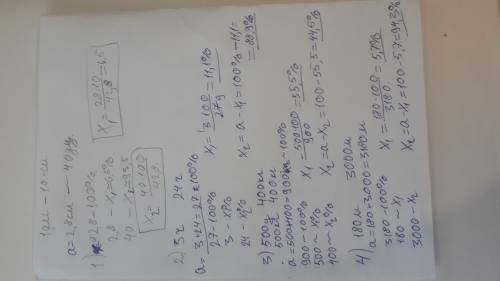 1дм - 10 см
a = 2,8 см — 40 дм
1) 42,8 - 100%
2,8 - x₁ = 6,5%
40 - x₂ = 93,5
x₁ = 28·10 / 42,8 = 6,5
x₂ = 40·100 / 42,8
2) 3 ч 24 ч
a = 3 + 24 = 27 ч 100%
27 - 100%
3 - x₁%
24 - x₂%
x₁ = 3·100 / 27 = 11,1%
x₂ = a - x₁ = 100% - 11,1 =
= 88,9%
3) 500 кг 400 кг
500 кг 400 кг
a = 500 + 400 = 900 кг - 100%
900 - 100%
500 - x₁%
100 - x₂%
x₁ = 500·100 / 900 = 55,5%
x₂ = a - x₁ = 100 - 55,5 = 44,5%
4) 180 м 3000 м
a = 180 + 3000 = 3180 м
3180 - 100%
180 - x₁
3000 - x₂
x₁ = 180·100 / 3180 = 5,7%
x₂ = a - x₁ = 100 - 5,7 = 94,3%